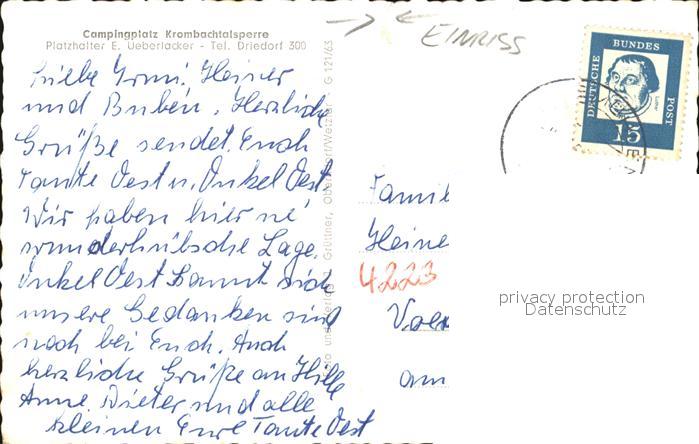 Campingplatz Krombachtalsperre
Platzhalter E. Ueberlacker - Tel. Driedorf 300
EINRISS
Liebe Irmi, Heiner
und Buben. Herzliche
Grüße sendet Euch
Tante Oest u. Onkel Oest
Wir haben hier ne'
wunderhübsche Lage.
Onkel Oest sich
unsere Gedanken sind
noch bei Euch. Auch
herzliche Grüße an Hille
Anne, Dieter und alle
kleinen Eure Tante Oest
Foto und Verlag Grüttner, Wetzlar - G 121/63
DEUTSCHE
BUNDES
POST
15
Famil
Heine
4223
Voer
am
privacy protection
Datenschutz